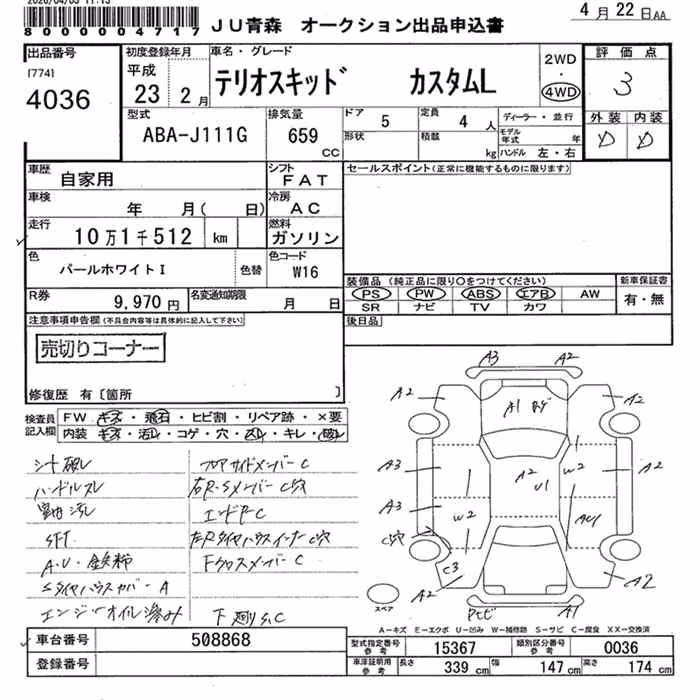 2026/04/03 11:13
8000004717
JU青森 オークション出品申込書
4月22日AA
出品番号
[774]
4036
初度登録年月
平成
23 2月
車名・グレード
テリオスキッド カスタムL
2WD
・
4WD
評価点
3
型式
ABA-J111G
排気量
659
CC
ドア
5
形状
定員
4人
積載
kg
ディーラー・並行
モデル年式 年
ハンドル 左・右
外装 内装
D D
車歴
自家用
シフト
FAT
車検
年 月( 日)
冷房
AC
走行
10万1千512 km
燃料
ガソリン
色
パールホワイトI
色替
色コード
W16
R券
9,970円
名変通知期限
月 日
セールスポイント(正常に機能するものに限ります)
装備品(純正品に限り○をつけてください)
PS PW ABS エアB AW
SR ナビ TV カワ
新車保証書
有・無
後日品
注意事項申告欄(不具合内容等は具体的に記入して下さい)
売切りコーナー
修復歴 有〔箇所 〕
検査員記入欄
FW キズ・飛石・ヒビ割・リペア跡・×要
内装 キズ・汚レ・コゲ・穴・凹レ・キレ・破レ
シート破レ
ハンドルスレ
室内汚レ
SFT
A.U・鉄粉
タイヤハウスカバーA
エンジンオイル滲み
フロアサイドメンバーC
右R・SメンバーC穴
エンドPC
左RタイヤハウスインナーC穴
FクロスメンバーC
下廻りS,C
A3
A2
A2
A1
A2
A3
A2
W2
A2
U1
A3
W2
C穴
C3
A2
A2
A1
スペア
A-キズ E-エクボ U-凹み W-補修跡 S-サビ C-腐食 XX-交換済
車台番号
508868
登録番号
型式指定番号参考
15367
類別区分番号参考
0036
車庫証明用参考
長さ
339cm
幅
147cm
高さ
174cm